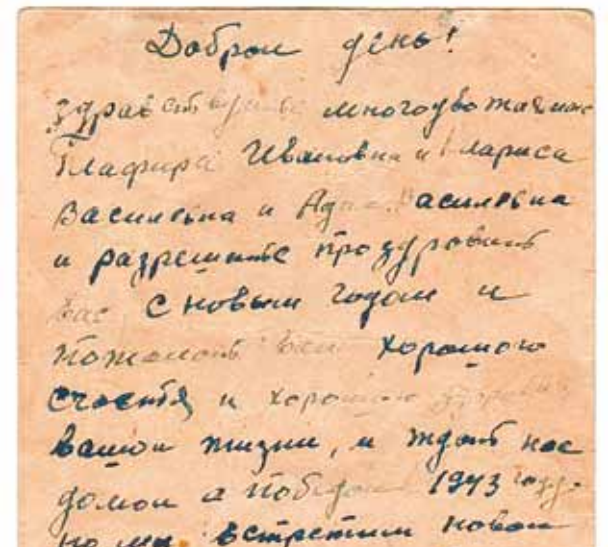 Доброи день!
здравствуйте многоуважаемые
Глафира Ивановна и Лариса
Василевна и Ада Василевна
и разрешите проздровить
вас с новым годом и
пожелать вам хорошого
счастя и хорошого здоровия
вашои жизни, и ждать нас
домои а победои 1943 году.
но мы встретим новои